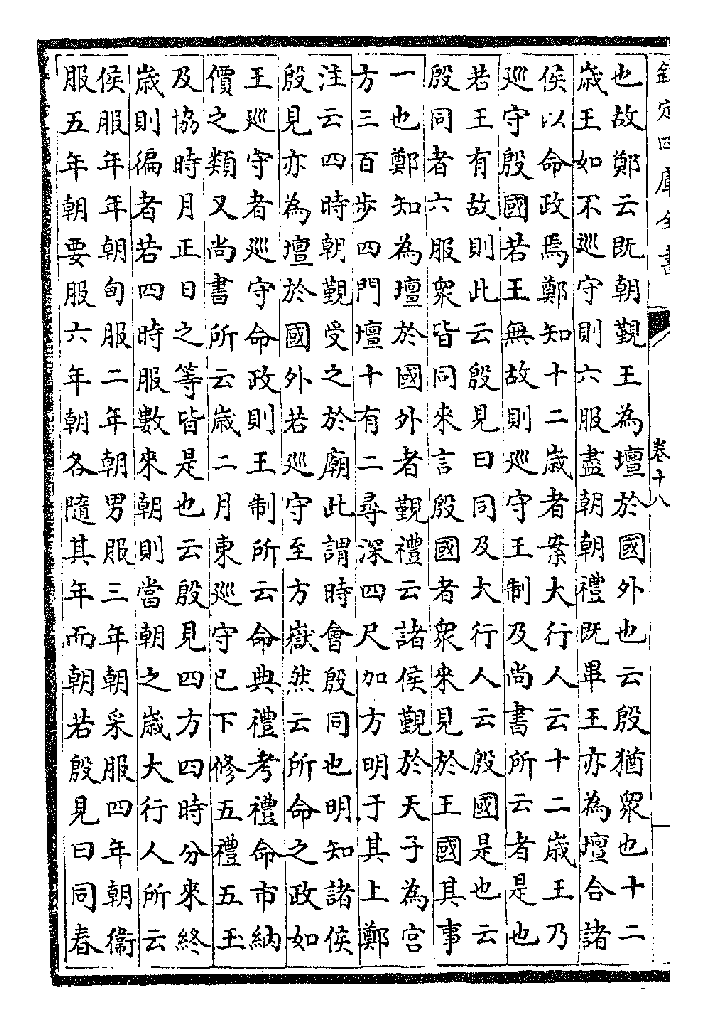 欽定四庫全書
卷十八
也故鄭云既朝覲王為壇於國外也云殷猶眾也十二
歲王如不巡守則六服盡朝朝禮既畢王亦為壇合諸
侯以命政焉鄭知十二歲者案大行人云十二歲王乃
巡守殷國若王無故則巡守王制及尚書所云者是也
若王有故則此云殷見曰同及大行人云殷國是也云
殷同者六服眾皆同來言殷國者眾來見於王國其事
一也鄭知為壇於國外者覲禮云諸侯覲於天子為宮
方三百步四門壇十有二尋深四尺加方明于其上鄭
注云四時朝覲受之於廟此謂時會殷同也明知諸侯
殷見亦為壇於國外若巡守至方嶽然云所命之政如
王巡守者巡守命政則王制所云命典禮考禮命市納
價之類又尚書所云歲二月東巡守已下修五禮五玉
及協時月正日之等皆是也云殷見四方四時分來終
歲則徧者若四時服數來朝則當朝之歲大行人所云
侯服年年朝甸服二年朝男服三年朝采服四年朝衞
服五年朝要服六年朝各隨其年而朝若殷見曰同春